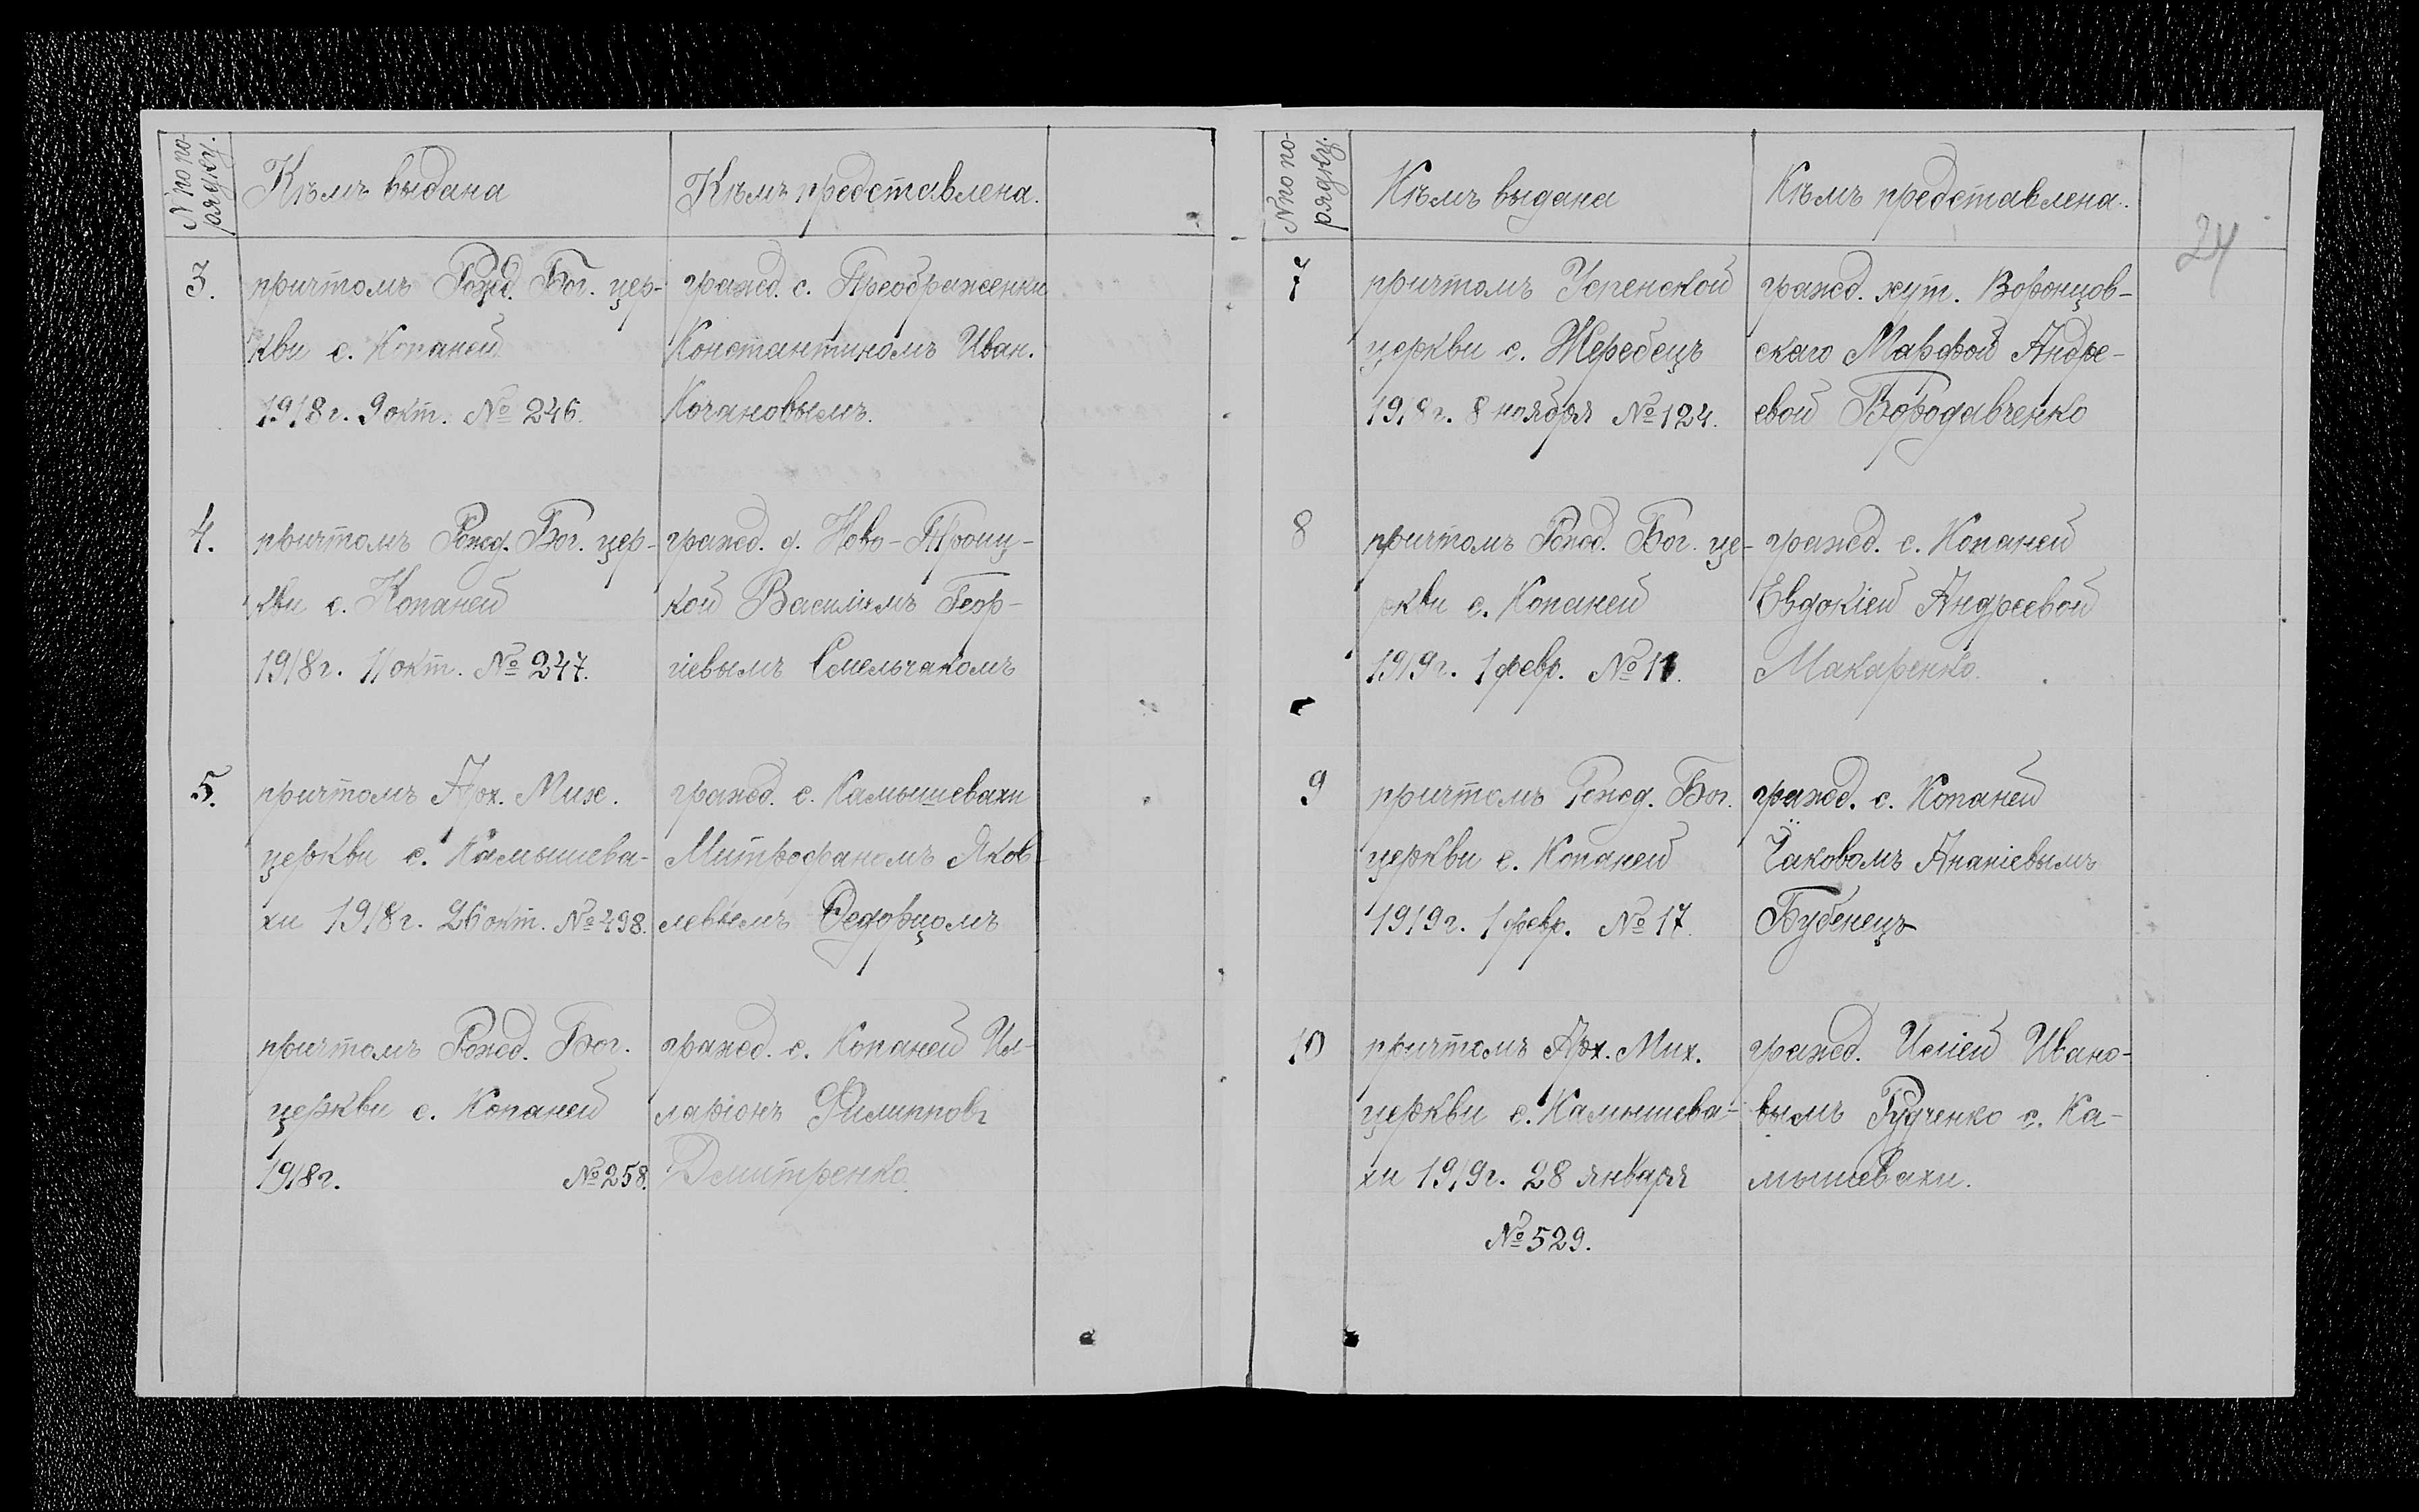 № по по-
рядку.
Кѣмъ выдана
Кѣмъ представлена.
3.
причтомъ Рожд. Бог. цер-
кви с. Копаней
1918 г. 9 окт. № 246.
гражд. с. Преображенки
Константиномъ Иван.
Кочановымъ.
4.
причтомъ Рожд. Бог. цер-
кви с. Копаней
1918 г. 11 окт. № 247.
гражд. д. Ново-Троиц-
кой Василіемъ Геор-
гіевымъ Смельчакомъ
5.
причтомъ Арх. Мих.
церкви с. Камышева-
хи 1918 г. 26 окт. № 498.
гражд. с. Камышевахи
Митрофаномъ Яков-
левымъ Федорцомъ
причтомъ Рожд. Бог.
церкви с. Копаней
1918 г. № 258.
гражд. с. Копаней Ил-
ларіонъ Филиппов
Дмитренко.
№ по по-
рядку.
Кѣмъ выдана
Кѣмъ представлена.
24
7
причтомъ Успенской
церкви с. Жеребецъ
1918 г. 8 ноября № 124.
гражд. хут. Воронцов-
скаго Марфой Андре-
евой Бородавченко
8
причтомъ Рожд. Бог. це-
ркви с. Копаней
1919 г. 1 февр. № 11.
гражд. с. Копаней
Евдокіей Андреевой
Макаренко.
9
причтомъ Рожд. Бог.
церкви с. Копаней
1919 г. 1 февр. № 17.
гражд. с. Копаней
Іаковомъ Ананіевымъ
Бубенецъ
10
причтомъ Арх. Мих.
церкви с. Камышева-
хи 1919 г. 28 января
№ 529.
гражд. Иліей Ивано-
вымъ Рудченко с. Ка-
мышевахи.